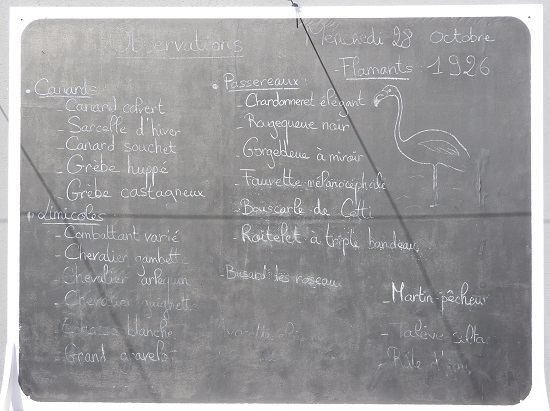 Observations
Mercredi 28 Octobre
Flamants 1926
• Canards
- Canard colvert
- Sarcelle d'hiver
- Canard souchet
- Grèbe huppé
- Grèbe castagneux
• Limicoles
- Combattant varié
- Chevalier gambette
- Chevalier arlequin
- Chevalier guignette
- Echasse blanche
- Grand gravelot
• Passereaux
- Chardonneret élégant
- Rougequeue noir
- Gorgebleue à miroir
- Fauvette mélanocéphale
- Bouscarle de Cetti
- Roitelet à triple bandeau
- Busard des roseaux
- Martin-pêcheur
- Talève sultane
- Râle d'eau